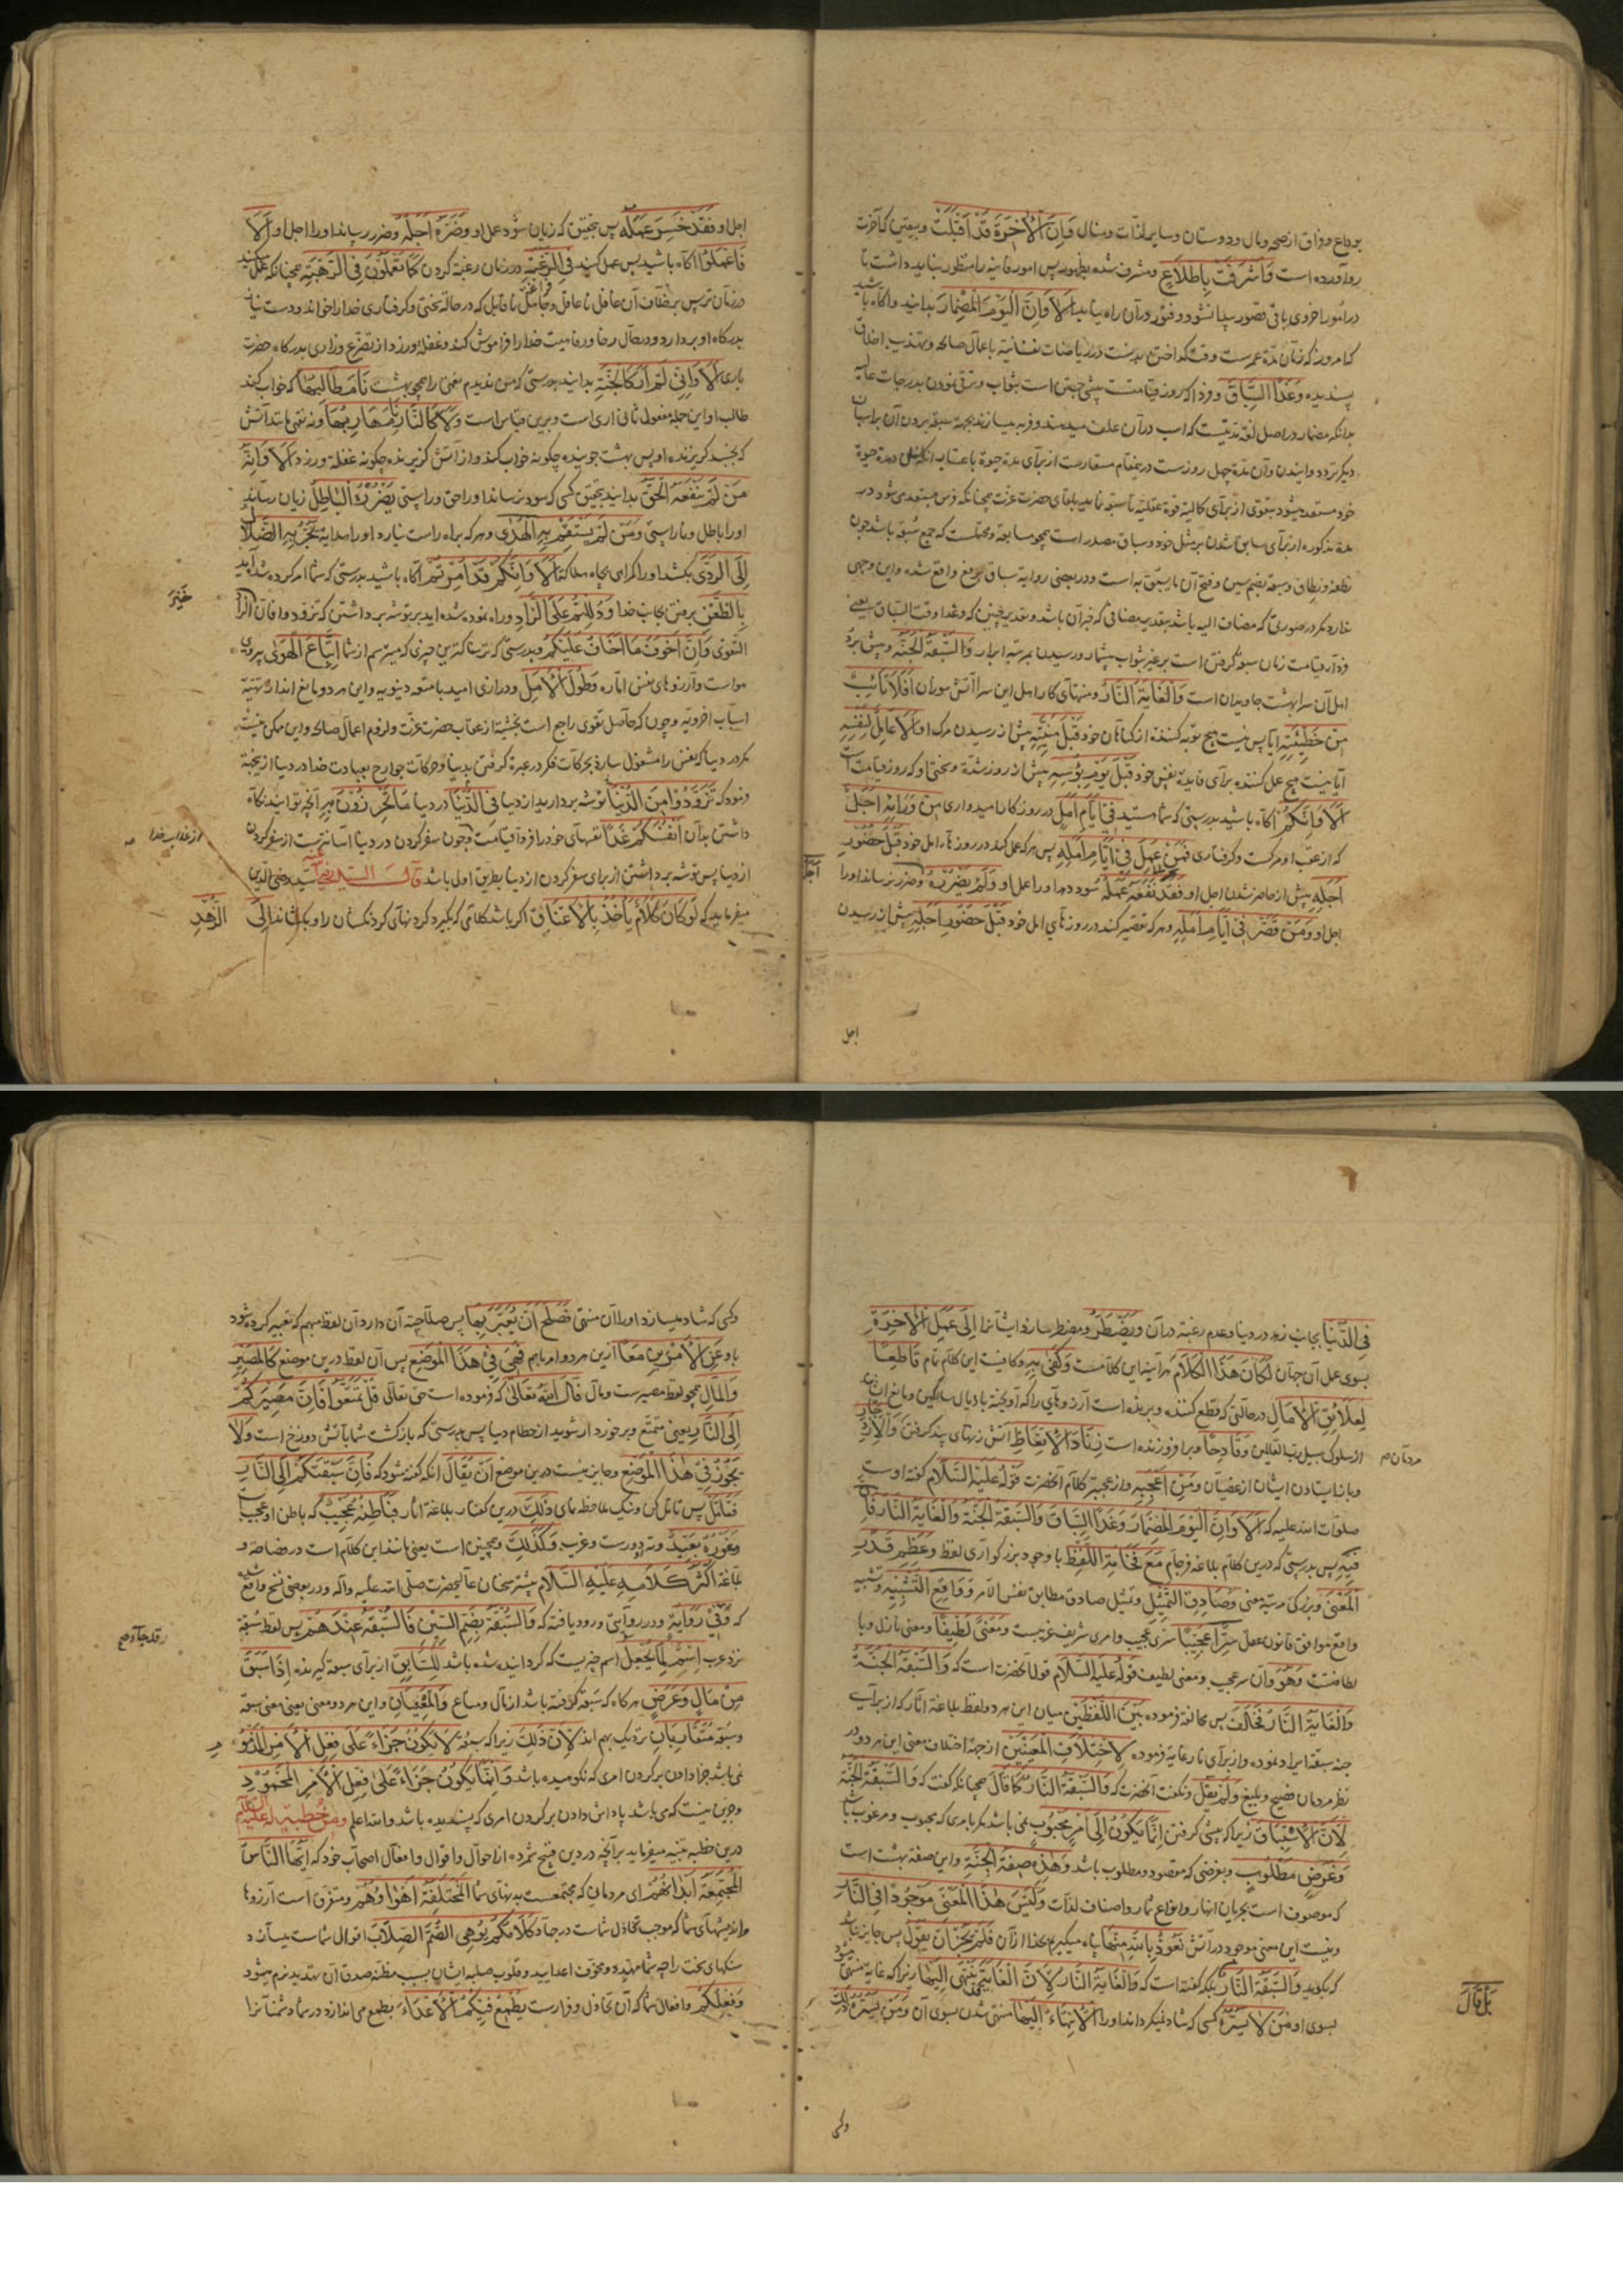 بوداع و فراق از صحه و مال و دوستان و سایر ملذات و منال فَاِنَّ الْاٰخِرَةَ قَدْ اَقْبَلَتْ و بیقین که آخرت
رو آورده است وَاَشْرَفَتْ بِاطِّلَاعٍ و مشرف شده بظهور پس امور فانیه را منظور نباید داشت تا
در امور اخروی باقی قصور پیدا نشود و فتور در آن راه نیابد اَلَا وَاِنَّ الْیَوْمَ الْمِضْمَارَ بدانید و آگاه باشید
که امروز که زمان مدة عمرست وقت گداختن بدنست در ریاضات نفسانیه باعمال صالحه و تهذیب اخلاق
پسندیده وَغَدًا السِّبَاقَ و فردا که روز قیامتست پیشی جستن است بثواب و ترقی نمودن بدرجات عالیه
بدانکه مضمار در اصل لغة مدتیست که اسب در آن علف میدهند و فربه میسازند بجهة سبقه بردن آن بر اسبان
دیگر بتردد و دوانیدن و آن مدة چهل روزست در ینمقام مستعارست از برای مدة حیوة باعتبار انکه مکلف در مدة حیوة
خود مستعد میشود بتقوی از برای کمالیة قوة عقلیه تا سبقه نماید بلقای حضرت عزت همچنانکه فرس مستعد می شود در
مدة مذکوره از برای سابق شدن بر مثل خود و سباق مصدر است همچو مسابقة و محتملست که جمع سبقه باشد چون
نطفه و نطاف و سبقه بضم سین و فتح آن ما یسبق به است و در بعضی روایة سباق برفع واقع شده و این وجهی
ندارد مگر در صورتی که مضاف الیه باشد بتقدیر مضافی که خبر آن باشد و تقدیر چنین که وغدا وقت السباق یعنی
فردا در قیامت زمان سبقه گرفتن است بر غیر بثواب بیشمار و رسیدن بمرتبه ابرار وَالسَّبَقَةُ الْجَنَّةُ و پیش برد
اهل آن سرا بهشت جاویدان است وَالْغَایَةُ النَّارُ و منتهای کار اهل این سرا آتش سوزان اَفَلَا تَائِبٌ
مِنْ خَطِیْئَتِهِ آیا پس نیست هیچ توبه کننده از گناهان خود قَبْلَ مَنِیَّتِهِ پیش از رسیدن مرگ او اَلَا عَامِلٌ لِنَفْسِهِ
آیا نیست هیچ عمل کننده برای فایده نفس خود قَبْلَ یَوْمِ بُؤْسِهِ پیش از روز شدة و سختی او که روز قیامت است
اَلَا وَاِنَّکُمْ آگاه باشید بدرستی که شما هستید فِیْ اَیَّامِ اَمَلٍ در روزگار امیدواری مِنْ وَرَائِهِ اَجَلٌ
که از عقب او مرگست و گرفتاری فَمَنْ عَمِلَ فِیْ اَیَّامِ اَمَلِهِ پس هر که عمل کند در روزهای امل خود قَبْلَ حُضُوْرِ
اَجَلِهِ پیش از حاضر شدن اجل او فَقَدْ نَفَعَهُ عَمَلُهُ سود دهد او را عمل او وَلَمْ یَضْرُرْهُ و ضرر نرساند او را
اَجَلُهُ
اجل او وَمَنْ قَصَّرَ فِیْ اَیَّامِ اَمَلِهِ و هر که تقصیر کند در روزهای امل خود قَبْلَ حُضُوْرِ اَجَلِهِ پیش از رسیدن
اجل
اجل او فَقَدْ خَسِرَ عَمَلُهُ پس بتحقیق که زیان شود عمل او وَضَرَّهُ اَجَلُهُ و ضرر رساند او را اجل او اَلَا
فَاعْمَلُوْا آگاه باشید پس عمل کنید فِی الرَّغْبَةِ در زمان رغبة کردن کَمَا تَعْمَلُوْنَ فِی الرَّهْبَةِ همچنانکه عمل میکنید
در زمان ترس برخلاف آن غافل ناعاقل و جاهل ناقابل که در حالة سختی و گرفتاری خدا را خواند و دست نیاز
بدرگاه او بردارد و در حال رخا و رفاهیت خدا را فراموش کند و غفلة ورزد از تضرع و زاری بدرگاه حضرت
باری اَلَا وَاِنِّیْ لَمْ اَرَ کَالْجَنَّةِ بدانید بدرستی که من ندیدم نعمتی را همچو بهشت نَامَ طَالِبُهَا که خواب کند
طالب او این جمله مفعول ثانی اری است و برین قیاس است وَلَا کَالنَّارِ نَامَ هَارِبُهَا و نه نقمتی مانند آتش
که بخسبد گریزنده او پس بهشت جوینده چگونه خواب کند و از آتش گریزنده چگونه غفلة ورزد اَلَا وَاِنَّهُ
مَنْ لَمْ یَنْفَعْهُ الْحَقُّ بدانید بتحقیق کسی که سود نرساند او را حق و راستی یَضْرُرْهُ الْبَاطِلُ زیان رساند
او را باطل و ناراستی وَمَنْ لَمْ یَسْتَقِمْ بِهِ الْهُدٰی و هر که براه راست نیارد او را هدایة یَجُرُّ بِهِ الضَّلَالُ
اِلَی الرَّدٰی بکشد او را گمراهی بچاه هلاکة اَلَا وَاِنَّکُمْ قَدْ اُمِرْتُمْ آگاه باشید بدرستی که شما امر کرده شده اید
بِالظَّعْنِ برفتن بجانب خدا وَدُلِلْتُمْ عَلَی الزَّادِ و راه نموده شده اید بر توشه برداشتن که تزودوا فان خیر الزاد
التقوی وَاِنَّ اَخْوَفَ مَا اَخَافُ عَلَیْکُمْ و بدرستی که ترسناکترین چیزی که میترسم از شما اِتِّبَاعُ الْهَوٰی پیروی
هواست و آرزوهای نفس اماره وَطُوْلُ الْاَمَلِ و درازی امید بامتعه دنیویه و این هر دو مانع اند از تهیه
اسباب اخرویه و چون که حاصل تقوی راجع است بخشیة از عذاب حضرت عزت و لزوم اعمال صالحه و این ممکن نیست
مگر در دنیا که نفس را مشغول سازد بحرکات فکر در عبرة گرفتن بدنیا و حرکات جوارح بعبادت خدا در دنیا ازینجهة
فرمود که تَزَوَّدُوْا مِنَ الدُّنْیَا توشه بردارید از دنیا فِی الدُّنْیَا در دنیا مَا تُحْرِزُوْنَ بِهِ آنچه توانید نگاه
داشتن بدان اَنْفُسَکُمْ غَدًا نفسهای خود را فردا قیامت و چون سفر کردن در دنیا آسانترست از سفر کردن
از عذاب خدا
از دنیا پس توشه برداشتن از برای سفر کردن از دنیا بطریق اولی باشد قَالَ السَّیِّدُ الرَّضِیُّ سید رضی الدین
میفرماید که لَوْ کَانَ کَلَامٌ یَأْخُذُ بِالْاَعْنَاقِ اگر باشد کلامی که بگیرد گردنهای گردنکشان را و بکشاند اِلَی الزُّهْدِ
فِی الدُّنْیَا بجانب زهد در دنیا و عدم رغبة در آن وَیَضْطَرُّ و مضطر سازد ایشانرا اِلٰی عَمَلِ الْاٰخِرَةِ
بسوی عمل آن جهان لَکَانَ هٰذَا الْکَلَامَ هر آینه این کلامست وَکَفٰی بِهِ و کافیست این کلام تام قَاطِعًا
لِعَلَائِقِ الْاٰمَالِ در حالتی که قطع کننده و برنده است آرزوهایی را که آویخته
از سلوک سبیل رب العالمین وَقَادِحًا و برافروزنده است زِنَادَ الْاِتِّعَاظِ آتش زنهای پند گرفتن وَالْاِزْدِجَارِ
و باز ایستادن ایشان از عصیان وَمِنْ اَعْجَبِهِ و از عجبتر کلام آنحضرت قَوْلُهُ عَلَیْهِ السَّلَامُ گفته اوست
صلوات الله علیه که اَلَا وَاِنَّ الْیَوْمَ الْمِضْمَارَ وَغَدًا السِّبَاقَ وَالسَّبَقَةُ الْجَنَّةُ وَالْغَایَةُ النَّارُ فَاِنَّ
فِیْهِ پس بدرستی که درین کلام بلاغة فرجام مَعَ فَخَامَةِ اللَّفْظِ با وجود بزرگواری لفظ وَعِظَمِ قَدْرِ
الْمَعْنٰی و بزرگی مرتبه معنی وَصَادِقِ التَّمْثِیْلِ و تمثیل صادق مطابق نفس الامر وَوَاقِعِ التَّشْبِیْهِ و تشبیه
واقع موافق قانون عقل سِرًّا عَجِیْبًا سری عجیب و امری شریف غریبست وَمَعْنًی لَطِیْفًا و معنی نازل و با
لطافتست وَهُوَ و آن سر عجیب و معنی لطیف قَوْلُهُ عَلَیْهِ السَّلَامُ قول آنحضرت است که وَالسَّبَقَةُ الْجَنَّةُ
وَالْغَایَةُ النَّارُ فَخَالَفَ پس مخالفة فرموده بَیْنَ اللَّفْظَیْنِ میان این هر دو لفظ بلاغة آثار که از برای
جنه سبقه ایراد نموده و از برای نار غایه فرموده لِاخْتِلَافِ الْمَعْنَیَیْنِ از جهة اختلاف معنی این هر دو در
نظر مردمان فصیح و بلیغ وَلَمْ یَقُلْ و نگفت آنحضرت که وَالسَّبَقَةُ النَّارُ کَمَا قَالَ همچنانکه گفت که وَالسَّبَقَةُ الْجَنَّةُ
لِاَنَّ الْاِسْتِبَاقَ زیرا که پیشی گرفتن اِنَّمَا یَکُوْنُ اِلٰی اَمْرٍ مَحْبُوْبٍ نمی باشد مگر بامری که محبوب و مرغوب باشد
وَغَرَضٍ مَطْلُوْبٍ و بغرضی که مقصود و مطلوب باشد وَهٰذِهِ صِفَةُ الْجَنَّةِ و این صفة بهشت است
که موصوف است بجریان انهار و انواع ثمار و اصناف لذات وَلَیْسَ هٰذَا الْمَعْنٰی مَوْجُوْدًا فِی النَّارِ
و نیست این معنی موجود در آتش نَعُوْذُ بِاللّٰهِ مِنْهَا پناه میگیریم بخدا از آن فَلَمْ یَجُزْ اَنْ یَقُوْلَ پس جایز نباشد
که بگوید وَالسَّبَقَةُ النَّارُ بَلْ قَالَ بلکه گفته است که وَالْغَایَةُ النَّارُ لِاَنَّ الْغَایَةَ یَنْتَهِیْ اِلَیْهَا زیرا که غایه منتهی میشود
بسوی او مَنْ لَا یَسُرُّهُ کسی که شاد نمیگرداند او را الْاِنْتِهَاءُ اِلَیْهَا منتهی شدن بسوی آن وَمَنْ یَسُرُّهُ ذٰلِکَ
وکسی
وکسی که شاد میسازد او را آن منتهی فَصَلُحَ اَنْ یُعَبَّرَ بِهَا پس صلاحیت آن دارد آن لفظ مبهم که تعبیر کرده شود
باو عَنِ الْاَمْرَیْنِ مَعًا ازین هر دو امر باهم فَهِیَ فِیْ هٰذَا الْمَوْضِعِ پس آن لفظ درین موضع کَالْمَصِیْرِ
وَالْمَآلِ همچو لفظ مصیرست و مآل قَالَ اللّٰهُ تَعَالٰی که فرموده است حق تعالی قُلْ تَمَتَّعُوْا فَاِنَّ مَصِیْرَکُمْ
اِلَی النَّارِ یعنی متمتع و برخوردار شوید از حطام دنیا پس بدرستی که بازگشت شما بآتش دوزخ است وَلَا
یَجُوْزُ فِیْ هٰذَا الْمَوْضِعِ و جایز نیست درین موضع اَنْ یُقَالَ آنکه گفته شود که فَاِنَّ سَبَقَتَکُمْ اِلَی النَّارِ
فَتَأَمَّلْ پس تامل کن و نیک ملاحظه نمای ذٰلِکَ درین گفتار بلاغة آثار فَبَاطِنُهُ عَجِیْبٌ که باطن او عجیبست
وَغَوْرُهُ بَعِیْدٌ و ته او دورست و غریب وَکَذٰلِکَ و همچنین است یعنی مانند این کلام است در فصاحة و
بلاغة اَکْثَرُ کَلَامِهِ عَلَیْهِ السَّلَامُ بیشتر سخنان عالیحضرت صلی الله علیه وآله و در بعضی نسخ واقع شده
که وَفِیْ رِوَایَةٍ و در روایتی ورود یافته که وَالسُّبْقَةُ بِضَمِّ السِّیْنِ فَالسُّبْقَةُ عِنْدَهُمْ پس لفظ سبقه
نزد عرب اِسْمٌ لِمَا یُجْعَلُ اسم چیزیست که گردانیده شده باشد لِلسَّابِقِ از برای سبقه گیرنده اِذَا سَبَقَ
مِنْ مَالٍ وَعَرَضٍ هر گاه که سبقه گرفته باشد از مال و متاع وَالْمَعْنَیَانِ و این هر دو معنی یعنی معنی سبقه
و سبقه مُتَقَارِبَانِ نزدیک بهم اند لِاَنَّ ذٰلِکَ زیرا که سبقه لَا یَکُوْنُ جَزَاءً عَلٰی فِعْلِ الْاَمْرِ الْمَذْمُوْمِ
نمی باشد جزا دادن بر کردن امری که نکوهیده باشد وَاِنَّمَا یَکُوْنُ جَزَاءً عَلٰی فِعْلِ الْاَمْرِ الْمَحْمُوْدِ
و جزین نیست که می باشد پاداش دادن بر کردن امری که پسندیده باشد والله اعلم وَمِنْ خُطْبَةٍ لَهُ عَلَیْهِ السَّلَامُ
درین خطبه تنبیه میفرماید بر آنچه در دین قبیح شمرده از احوال و اقوال و افعال اصحاب خود که اَیُّهَا النَّاسُ
الْمُجْتَمِعَةُ اَبْدَانُهُمْ ای مردمان که مجتمعست بدنهای شما الْمُخْتَلِفَةُ اَهْوَاؤُهُمْ و متفرق است آرزوها
و اندیشهای شما که موجب تخاذل شماست در جهاد کَلَامُکُمْ یُوْهِی الصُّمَّ الصِّلَابَ اقوال شماست میسازد
سنگهای سخت را چه شما مهدد و مخوف اعدایید و قلوب صلبه ایشان بسبب مظنه صدق آن تهدید نرم میشود
وَفِعْلُکُمْ و افعال شما که آن تخاذل و فرارست یُطْمِعُ فِیْکُمُ الْاَعْدَاءَ بطمع می اندازد در شما دشمنانرا